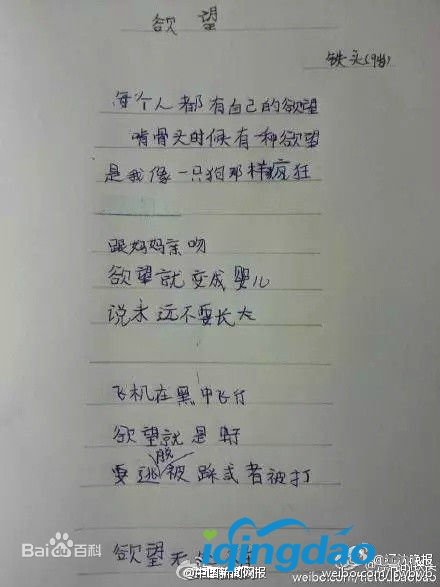 欲望
铁头(9岁)
每个人都有自己的欲望
啃骨头时候有一种欲望
是我像一只狗那样疯狂
跟妈妈亲吻
欲望就变成婴儿
说永远不要长大
飞机在黑中飞行
欲望就是
要逃脱被踩或者被打
欲望无
Bai百科
iqingdao